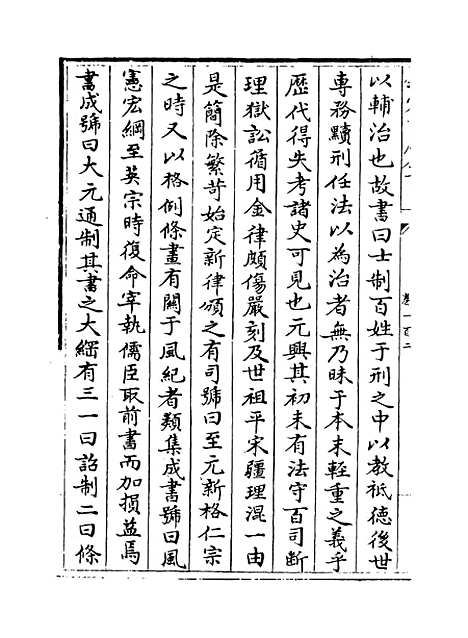 以輔治也故書曰士制百姓于刑之中以教祗德後世
專務黷刑任法以為治者無乃昧于本末輕重之義乎
歴代得失考諸史可見也元興其初未有法守百司斷
理獄訟循用金律頗傷嚴刻及世祖平宋疆理混一由
是簡除繁苛始定新律頒之有司號曰至元新格仁宗
之時又以格例條畫有關于風紀者類集成書號曰風
憲宏綱至英宗時復命宰執儒臣取前書而加損益焉
書成號曰大元通制其書之大綱有三一曰詔制二曰條
卷一百二